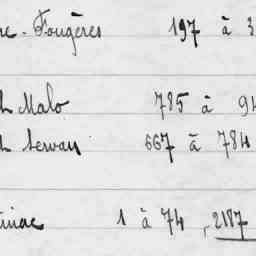 Fougères 197 à 3
Malo 785 à 94
Servan 667 à 784
1 à 74, 2187